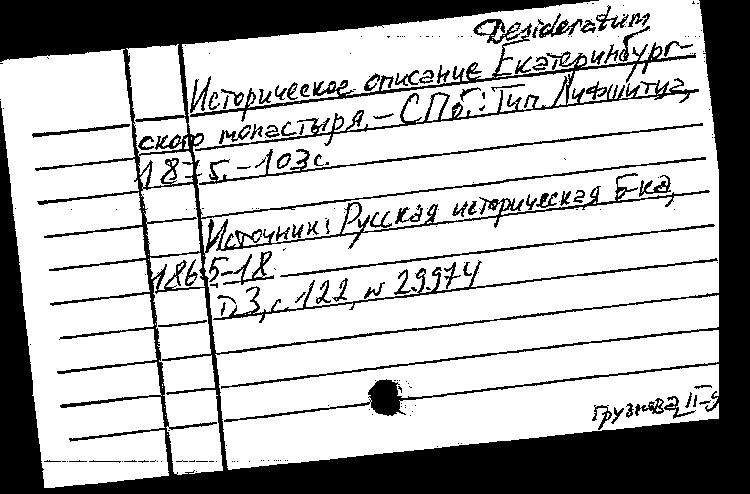 Desideratum
Историческое описание Екатеринбург-
ского монастыря. – СПб.: Тип. Лифшица,
1875. – 103 с.
Источник: Русская историческая б-ка,
1865-18
Т.3, с. 122, № 29974
Грузнова, II-